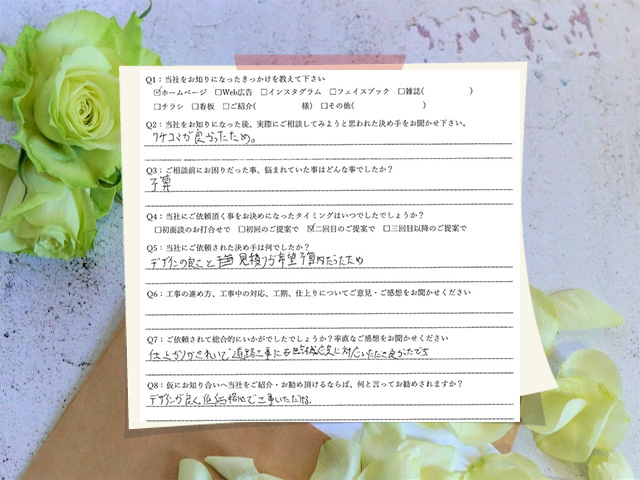 Q1：当社をお知りになったきっかけを教えて下さい
☑ホームページ □Web広告 □インスタグラム □フェイスブック □雑誌( )
□チラシ □看板 □ご紹介( 様) □その他( )
Q2：当社をお知りになった後、実際にご相談してみようと思われた決め手をお聞かせ下さい。
クチコミが良かったため。
Q3：ご相談前にお困りだった事、悩まれていた事はどんな事でしたか？
予算
Q4：当社にご依頼頂く事をお決めになったタイミングはいつでしたでしょうか？
□初面談のお打合せで □初回のご提案で ☑二回目のご提案で □三回目以降のご提案で
Q5：当社にご依頼された決め手は何でしたか？
デザインの良さと 見積りが希望予算内だったため
Q6：工事の進め方、工事中の対応、工期、仕上りについてご意見・ご感想をお聞かせください
Q7：ご依頼されて総合的にいかがでしたでしょうか？率直なご感想をお聞かせください
仕上りがきれいで道路工事にも臨機応変に対応いただき良かったです
Q8：仮にお知り合いへ当社をご紹介・お勧め頂けるならば、何と言ってお勧めされますか？
デザインが良く、低価格で工事いただける。